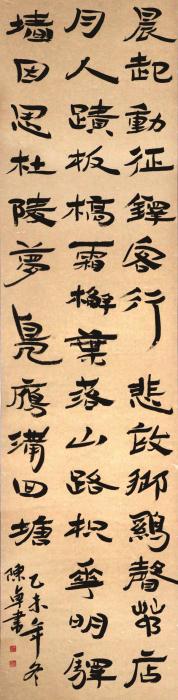 晨起動征鐸客行悲故鄉鷄聲茅店
月人蹟板橋霜檞葉落山路枳華明驛
墻因思杜陵夢鳧鴈滿回塘
乙未年冬
陳卓書